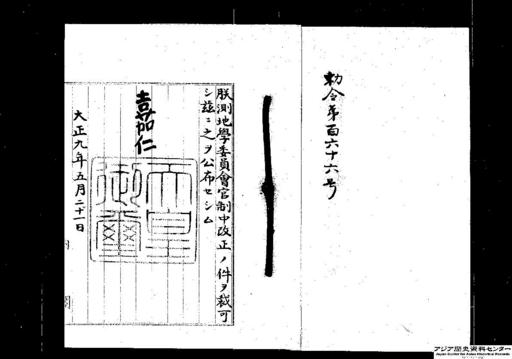 勅令第百六十六号
朕測地學委員會官制中改正ノ件ヲ裁可
シ茲ニ之ヲ公布セシム
嘉仁
天皇
御璽
大正九年五月二十一日
アジア歴史資料センター
Japan Center for Asian Historical Records